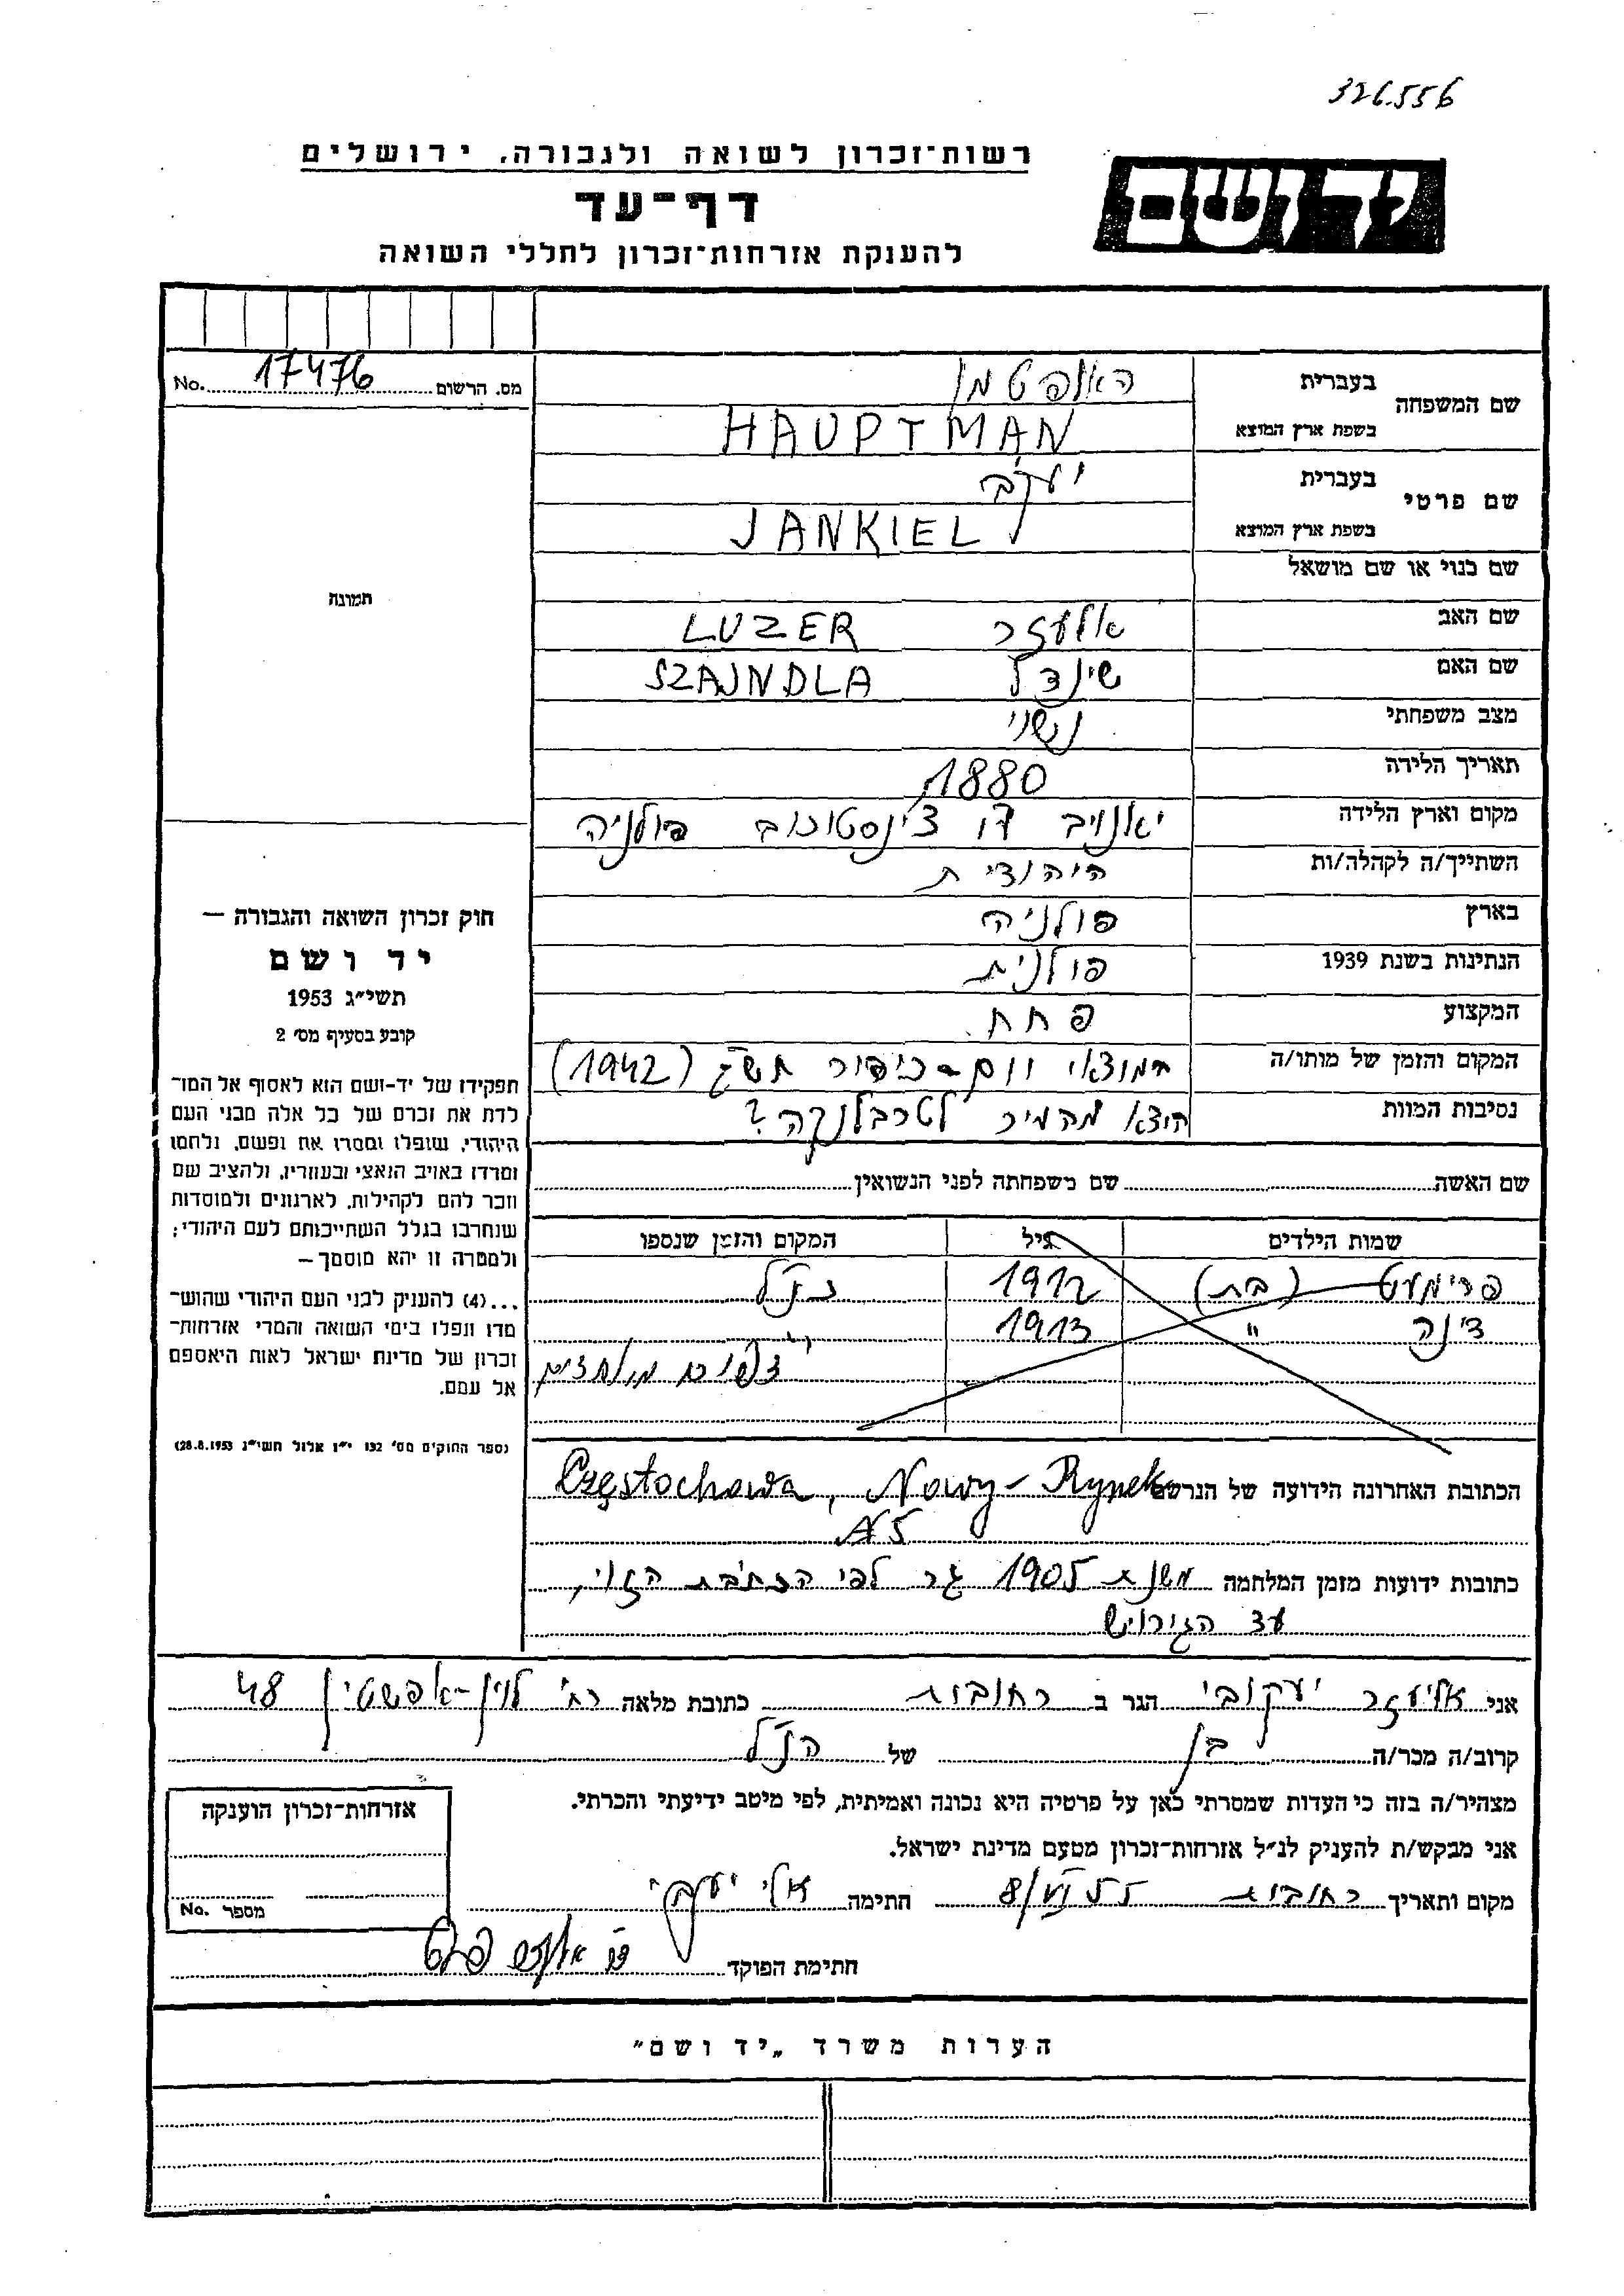 326556
רשות־זכרון לשואה ולגבורה. ירושלים
יד ושם
דף־עד
להענקת אזרחות־זכרון לחללי השואה
מס. הרשום 17476 No.
שם המשפחה
בעברית האופטמן
בשפת ארץ המוצא HAUPTMAN
שם פרטי
בעברית יעקב
בשפת ארץ המוצא JANKIEL
שם כנוי או שם מושאל
שם האב אלעזר LUZER
שם האם שינדל SZAJNDLA
מצב משפחתי נשוי
תאריך הלידה 1880
מקום וארץ הלידה יאנויב צ'נסטוכוב פולניה
השתייך/ה לקהלה/ות היהודית
בארץ פולניה
הנתינות בשנת 1939 פולנית
המקצוע פחח
המקום והזמן של מותו/ה במוצאי יום-כיפור תש"ג (1942)
נסיבות המוות הוצא מהעיר לטרבלנקה?
שם האשה שם משפחתה לפני הנשואין
שמות הילדים גיל המקום והזמן שנספו
פרימעט (בת) 1912 כנ"ל
דינה " 1913
הכתובת האחרונה הידועה של הנרשם Częstochowa, Nowy-Rynek
כתובות ידועות מזמן המלחמה משנת 1905 גר לפי הכתובת הזו,
עד הגירוש
תמונה
חוק זכרון השואה והגבורה —
יד ושם
תשי״ג 1953
קובע בסעיף מס׳ 2
תפקידו של יד-ושם הוא לאסוף אל המו־
לדת את זכרם של כל אלה מבני העם
היהודי, שנפלו ומסרו את נפשם, נלחמו
ומרדו באויב הנאצי ובעוזריו, ולהציב שם
וזכר להם לקהילות, לארגונים ולמוסדות
שנחרבו בגלל השתייכותם לעם היהודי;
ולמטרה זו יהא מוסמך —
...(4) להעניק לבני העם היהודי שהוש־
מדו ונפלו בימי השואה והמרי אזרחות־
זכרון של מדינת ישראל לאות היאספם
אל עמם.
(ספר החוקים מס׳ 132 י״ז אלול תשי״ג 28.8.1953)
אני אליעזר יעקובי הגר ב רחובות כתובת מלאה רח' לוין-אפשטין 48
קרוב/ה מכר/ה בן של הנ"ל
מצהיר/ה בזה כי העדות שמסרתי כאן על פרטיה היא נכונה ואמיתית, לפי מיטב ידיעתי והכרתי.
אני מבקש/ת להעניק לנ״ל אזרחות־זכרון מטעם מדינת ישראל.
מקום ותאריך רחובות 8/VI 55 חתימה אלי יעקבי
חתימת הפוקד
אזרחות־זכרון הוענקה
מספר No.
הערות משרד „יד ושם״